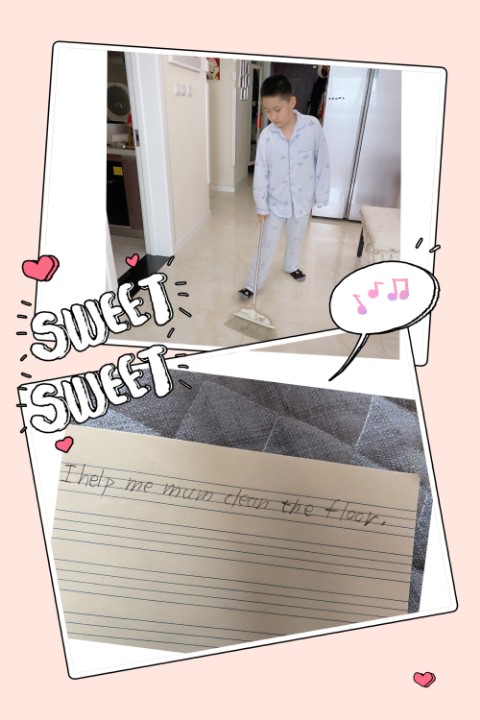 SWEET
SWEET
I help me mum clean the floor.